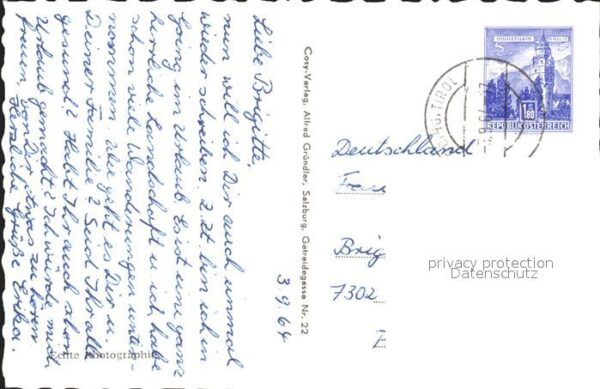 Liebe Brigitte,
nun will ich Dir auch einmal
wieder schreiben. Z. Zt. bin ich in
Going im Urlaub. Es ist eine ganz
herrliche Landschaft u. ich habe
schon viele Wanderungen unter-
nommen. Wie geht es Dir u.
Deiner Familie? Seid Ihr alle
gesund? Habt Ihr auch schon
Urlaub gemacht? Ich würde mich
freuen von Dir etwas zu hören
Herzliche Grüße Erika.
3.9.64
Echte Photographie
Cosy-Verlag, Alfred Gründler, Salzburg, Getreidegasse Nr. 22
MÜNZTURM HALL I. T.
1.80
REPUBLIK ÖSTERREICH
TIROL
Deutschland
Frau
Brig
7302
privacy protection
Datenschutz